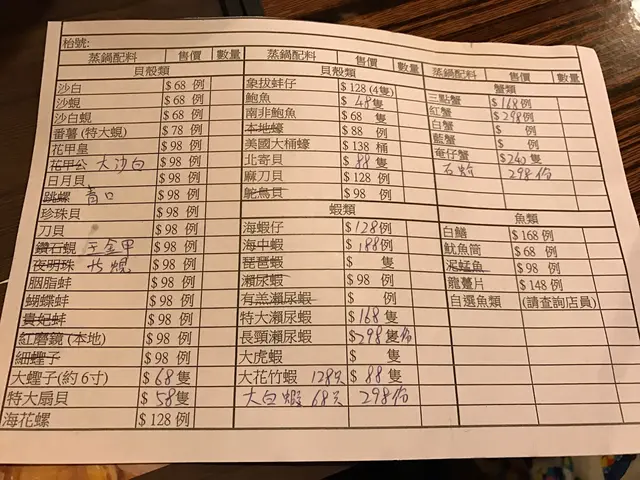 枱號:
蒸鍋配料 售價 數量
貝殼類
沙白 $ 68 例
沙蜆 $ 68 例
沙白蜆 $ 68 例
番薯 (特大蜆) $ 78 例
花甲皇 $ 98 例
花甲公 大沙白 $ 98 例
日月貝 $ 98 例
跳螺 青口 $ 98 例
珍珠貝 $ 98 例
刀貝 $ 98 例
鑽石蜆 王金甲 $ 98 例
夜明珠 蜆 $ 98 例
胭脂蚌 $ 98 例
蝴蝶蚌 $ 98 例
貴妃蚌 $ 98 例
紅磨鏡 (本地) $ 98 例
細蟶子 $ 98 例
大蟶子(約 6寸) $ 68 隻
特大扇貝 $ 58 隻
海花螺 $ 128 例
蒸鍋配料 售價 數量
貝殼類
象拔蚌仔 $ 128 (4隻)
鮑魚 $ 48 隻
南非鮑魚 $ 68 隻
本地蠔 $ 88 例
美國大桶蠔 $ 138 桶
北寄貝 $ 88 隻
麻刀貝 $ 128 例
鴕鳥貝 $ 98 例
蝦類
海蝦仔 $ 128 例
海中蝦 $ 188 例
琵琶蝦 $ 隻
瀨尿蝦 $ 98 例
有羔瀨尿蝦 $ 例
特大瀨尿蝦 $ 168 隻
長頸瀨尿蝦 $ 298 隻 份
大虎蝦 $ 隻
大花竹蝦 128 $ 88 隻
大白蝦 68 298份
蒸鍋配料 售價 數量
蟹類
三點蟹 $ 168 例
紅蟹 $ 298 例
白蟹 $ 例
藍蟹 $ 例
奄仔蟹 $ 240 隻
298份
魚類
白鱔 $ 168 例
魷魚筒 $ 68 例
泥鯭魚 $ 98 例
龍躉片 $ 148 例
自選魚類 (請查詢店員)